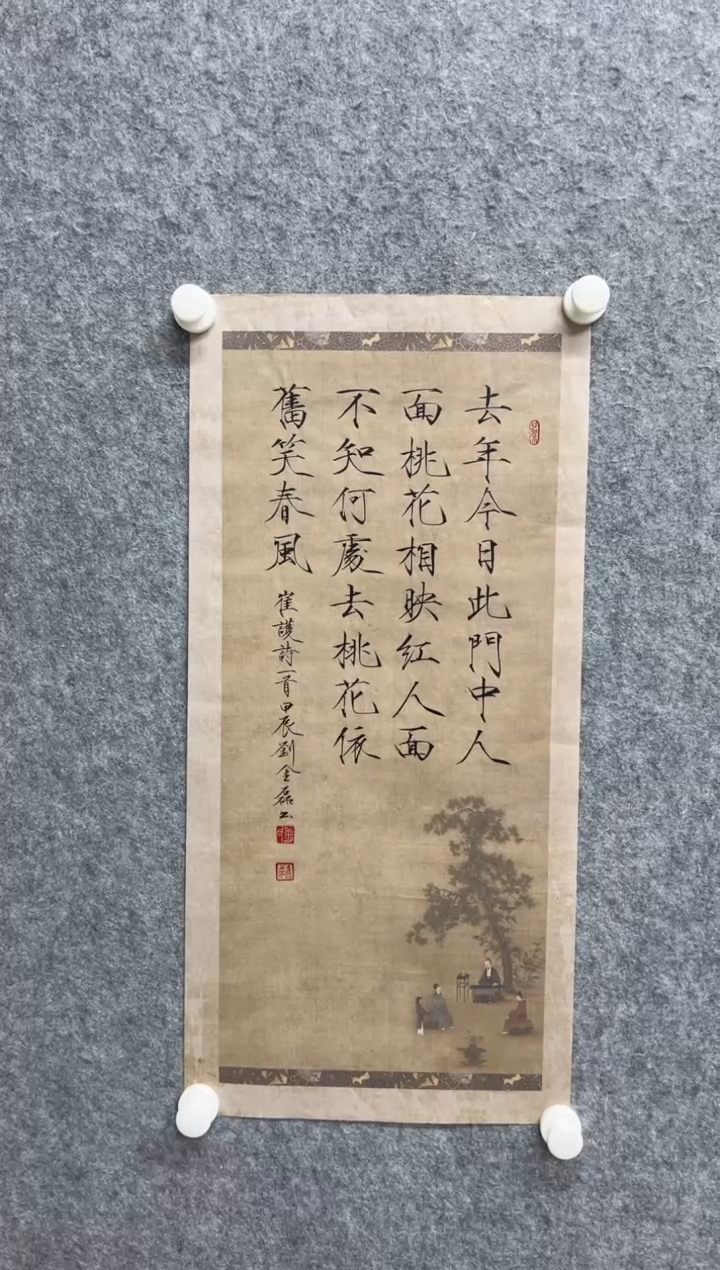 去年今日此門中人
面桃花相映红人面
不知何處去桃花依
舊笑春風
崔護詩一首甲辰劉金磊书